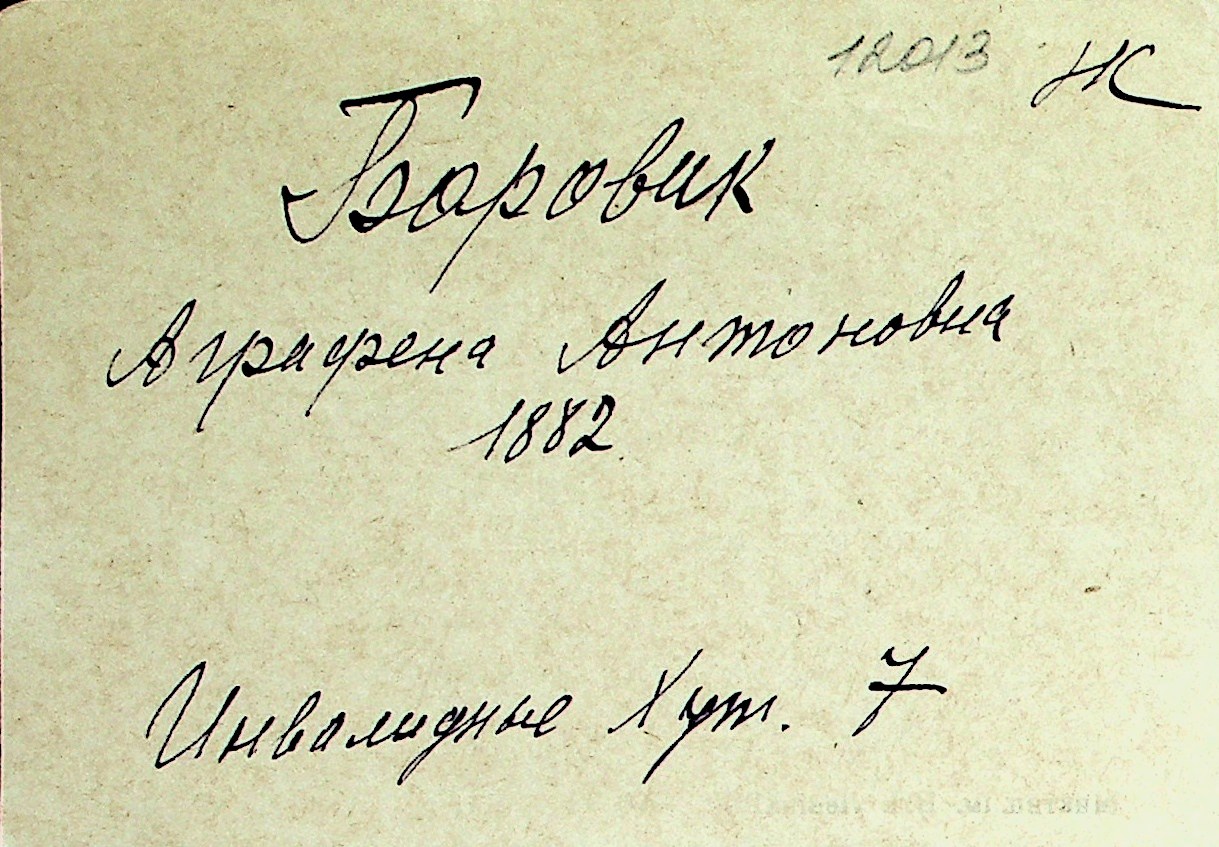 12013 НК
Боровик
Аграфена Антоновна
1882
Инвалидные Хут. 7